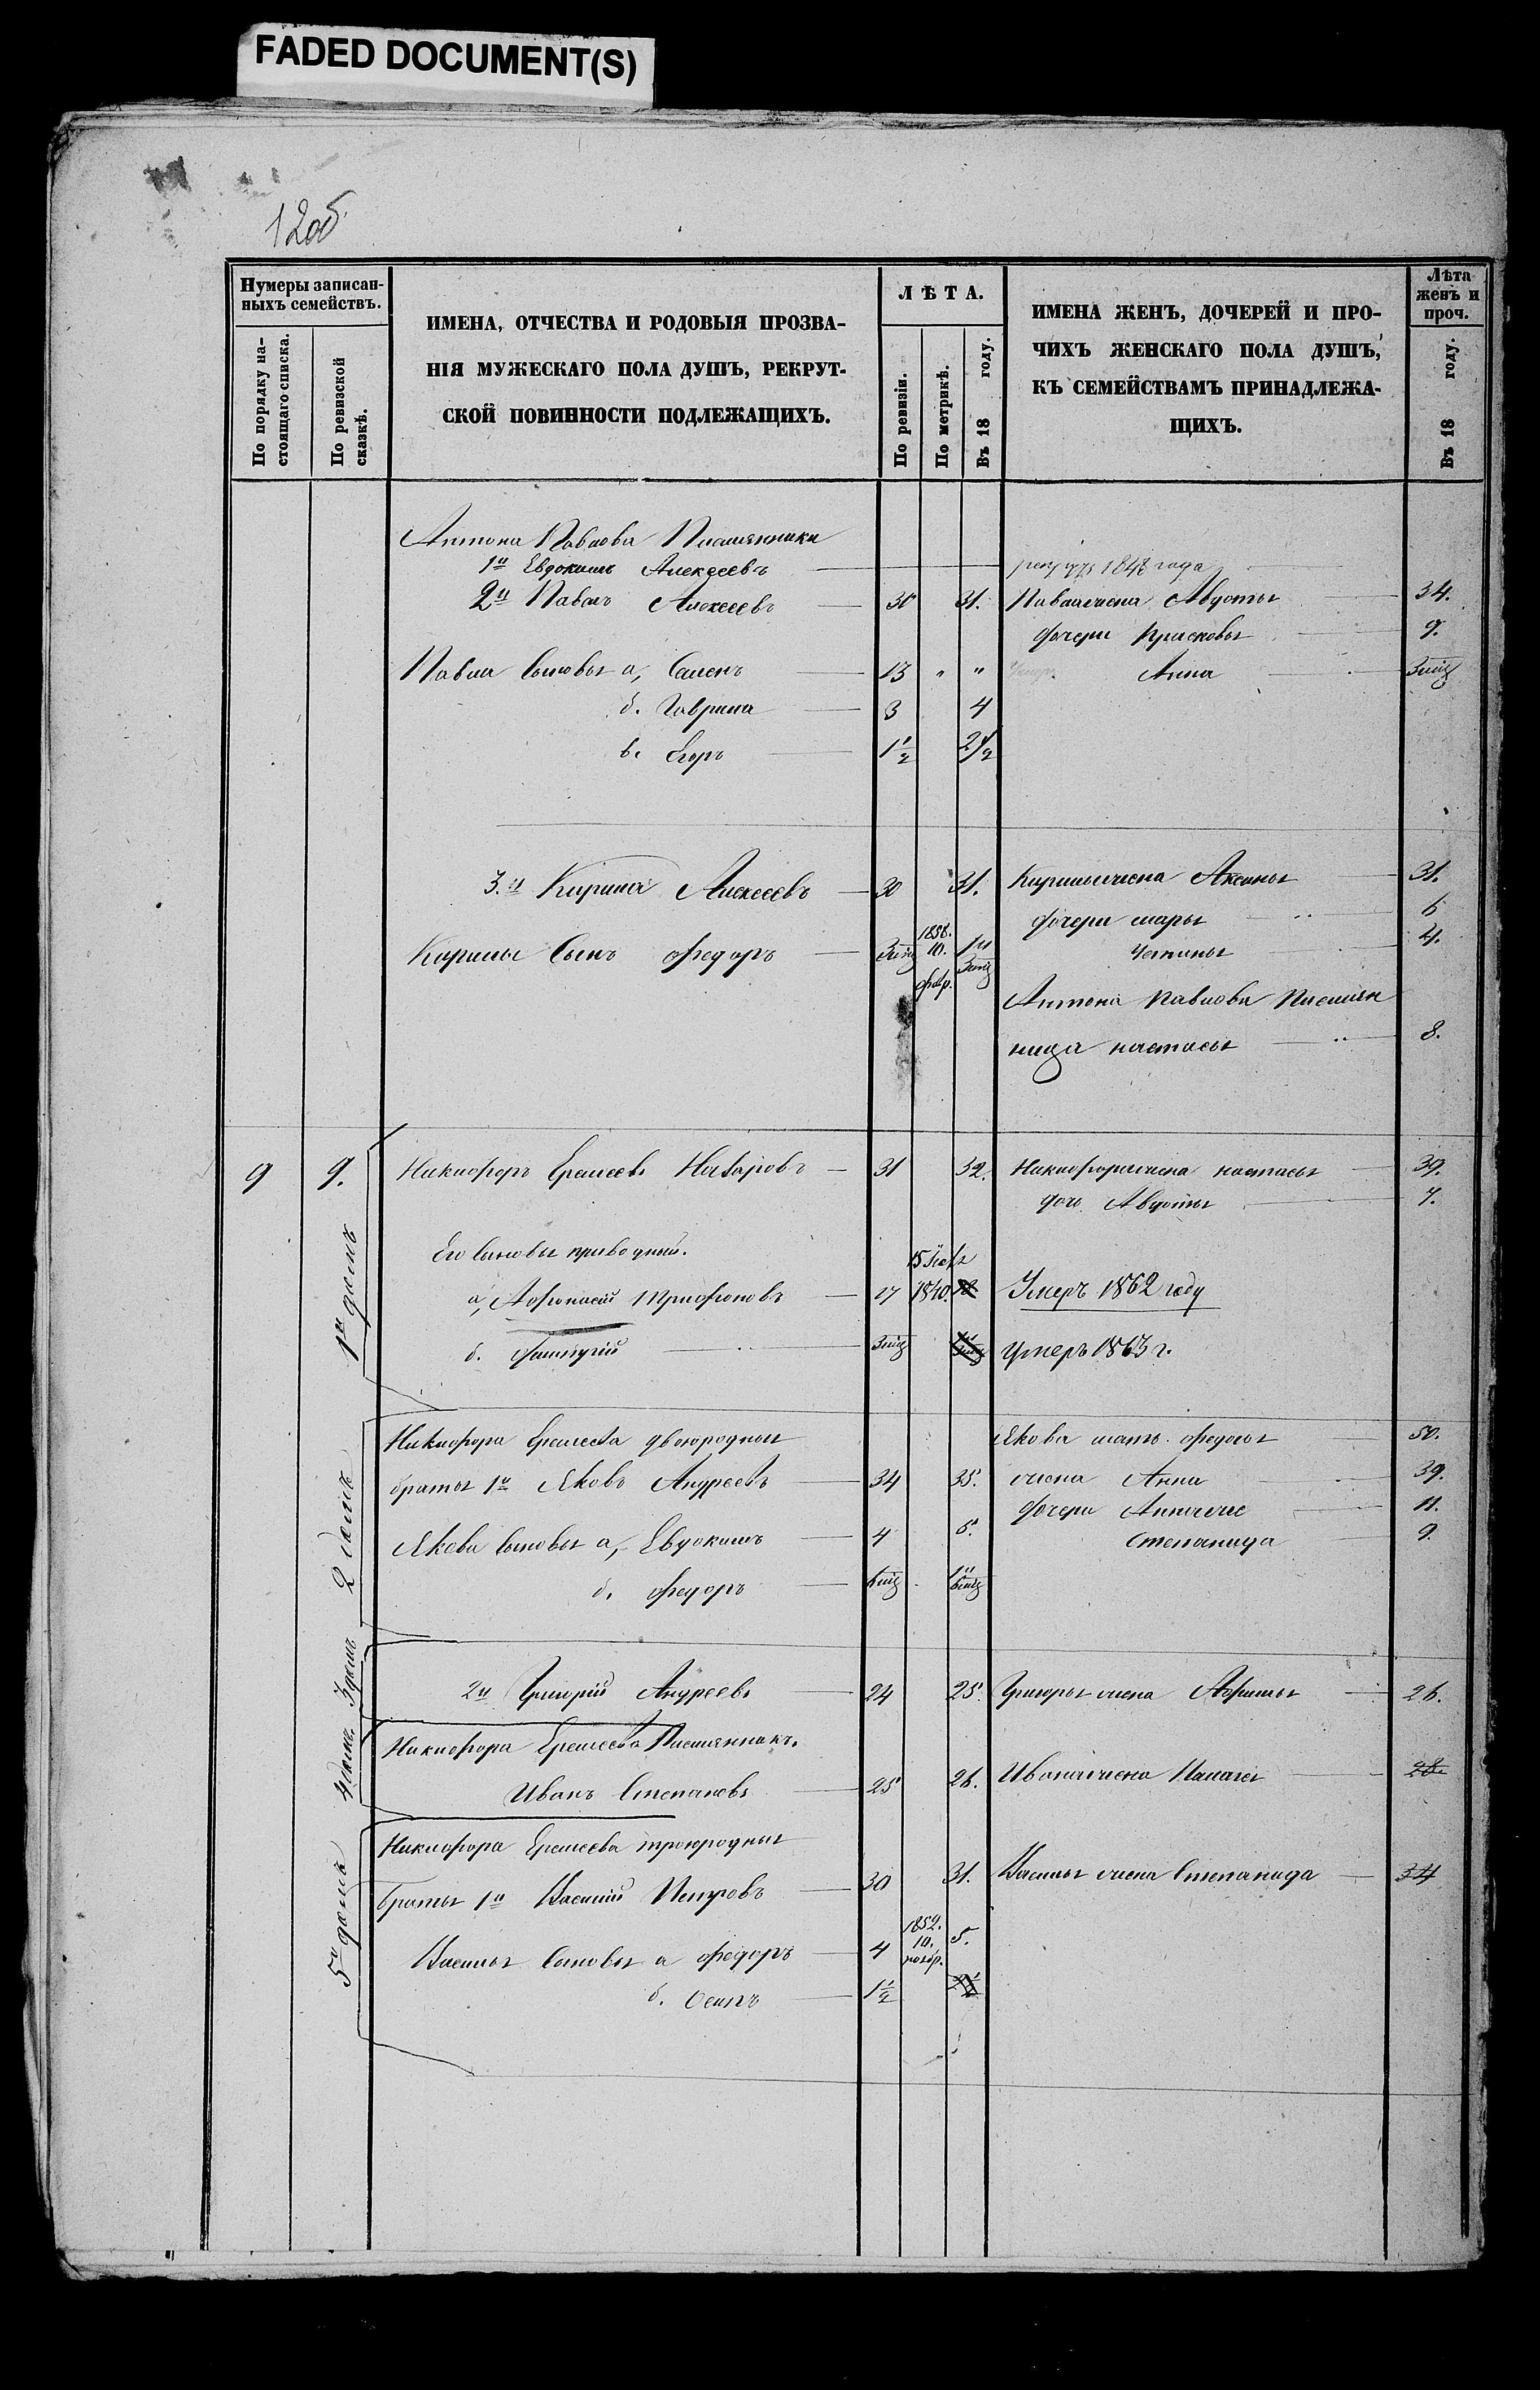 FADED DOCUMENT(S)
12об.
Нумеры записан-
ныхъ семействъ.
По порядку на-
стоящаго списка.
По ревизской
сказкѣ.
ИМЕНА, ОТЧЕСТВА И РОДОВЫЯ ПРОЗВА-
НІЯ МУЖЕСКАГО ПОЛА ДУШЪ, РЕКРУТ-
СКОЙ ПОВИННОСТИ ПОДЛЕЖАЩИХЪ.
ЛѢТА.
По ревизіи.
По метрикѣ.
Въ 18 году.
ИМЕНА ЖЕНЪ, ДОЧЕРЕЙ И ПРО-
ЧИХЪ ЖЕНСКАГО ПОЛА ДУШЪ,
КЪ СЕМЕЙСТВАМЪ ПРИНАДЛЕЖА-
ЩИХЪ.
Лѣта
женъ и
проч.
Въ 18 году.
Антона Павлова Племянники
1й Евдокимъ Алексеевъ 1848 года
2й Павелъ Алексеевъ 30 31. Павла жена Авдотья 34.
дочери Прасковья 9.
Павла Сыновья а, Семенъ 13 " " Анна
б. Гаврила 3 4
в. Егоръ 1½ 2½
3.й Кирила Алексеевъ 30 31. Кирилы жена Аксинья 31.
дочери Марья 6
Кирилы Сынъ Федоръ 1858. 10. февр. Устинья 4.
Антона Павлова Племян
ница Настасья 8.
9 9. 1й домъ Никифоръ Еремеевъ Назаровъ 31 32. Никифора жена Настасья 39.
дочь Авдотья 7.
Его Сыновья приводныи.
а, Афонасий Трифоновъ 17 1840. Умеръ 1862 году
б. Умеръ 1863 г.
2 домъ Никифора Еремеева двоюродныи Якова мать Федосья 50.
братья 1й Яковъ Андреевъ 34 35. жена Анна 39.
дочери 11.
Якова Сыновья а, Евдокимъ 4 5. Степанида 9.
б. Федоръ
3 домъ 2й Григорій Андреевъ 24 25. Григорья жена Афимья 26.
4 домъ Никифора Еремеева Племянникъ.
Иванъ Степановъ 25 26. Ивана жена Палагея 28.
5й домъ Никифора Еремеева троюродныи
братья 1й Василий Петровъ 30 31. Василья жена Степанида 34
Василья Сыновья а Федоръ 4 1852. 10. ноябр. 5.
б. Осипъ 1½ 2½